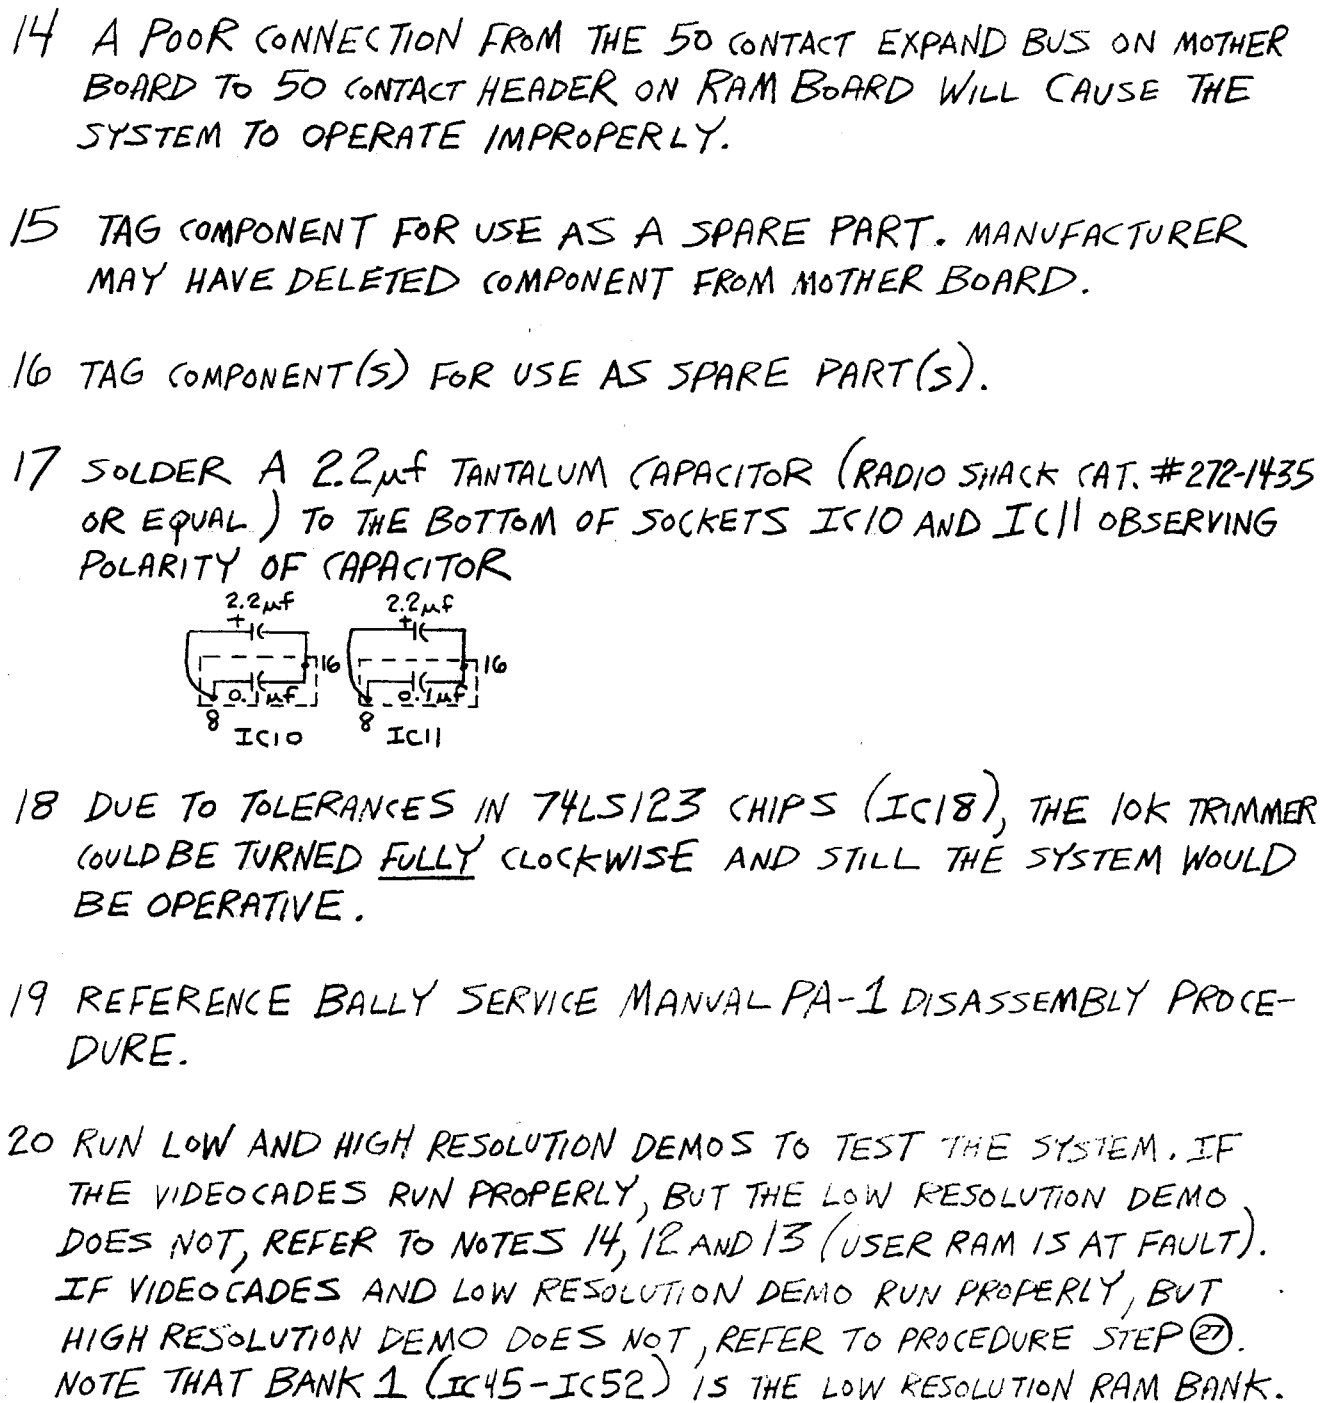 14 A POOR CONNECTION FROM THE 50 CONTACT EXPAND BUS ON MOTHER
BOARD TO 50 CONTACT HEADER ON RAM BOARD WILL CAUSE THE
SYSTEM TO OPERATE IMPROPERLY.
15 TAG COMPONENT FOR USE AS A SPARE PART. MANUFACTURER
MAY HAVE DELETED COMPONENT FROM MOTHER BOARD.
16 TAG COMPONENT(S) FOR USE AS SPARE PART(S).
17 SOLDER A 2.2µf TANTALUM CAPACITOR (RADIO SHACK CAT. #272-1435
OR EQUAL) TO THE BOTTOM OF SOCKETS IC10 AND IC11 OBSERVING
POLARITY OF CAPACITOR
2.2µf 2.2µf
+ +
16 16
0.1µf 0.1µf
8 8
IC10 IC11
18 DUE TO TOLERANCES IN 74LS123 CHIPS (IC18), THE 10K TRIMMER
COULD BE TURNED FULLY CLOCKWISE AND STILL THE SYSTEM WOULD
BE OPERATIVE.
19 REFERENCE BALLY SERVICE MANUAL PA-1 DISASSEMBLY PROCE-
DURE.
20 RUN LOW AND HIGH RESOLUTION DEMOS TO TEST THE SYSTEM. IF
THE VIDEOCADES RUN PROPERLY, BUT THE LOW RESOLUTION DEMO
DOES NOT, REFER TO NOTES 14, 12 AND 13 (USER RAM IS AT FAULT).
IF VIDEOCADES AND LOW RESOLUTION DEMO RUN PROPERLY, BUT
HIGH RESOLUTION DEMO DOES NOT, REFER TO PROCEDURE STEP 27.
NOTE THAT BANK 1 (IC45-IC52) IS THE LOW RESOLUTION RAM BANK.